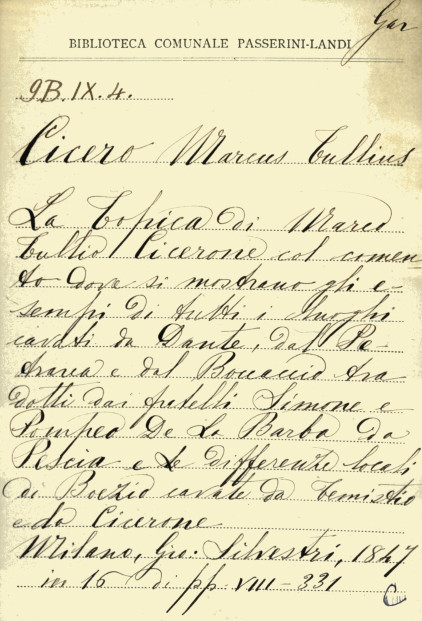 Gar
BIBLIOTECA COMUNALE PASSERINI-LANDI
9B.IX.4.
Cicero Marcus Tullius
La Topica di Marco
Tullio Cicerone col comen
to dove si mostrano gli e-
sempi di tutti i luoghi
cavati da Dante, dal Pe-
trarca e dal Boccaccio tra
dotti dai fratelli Simone e
Pompeo De La Barba da
Pescia e le differenze locali
di Boezio cavate da Temistio
e da Cicerone
Milano, Gio: Silvestri, 1847
in 16 di pp. VIII-331
C